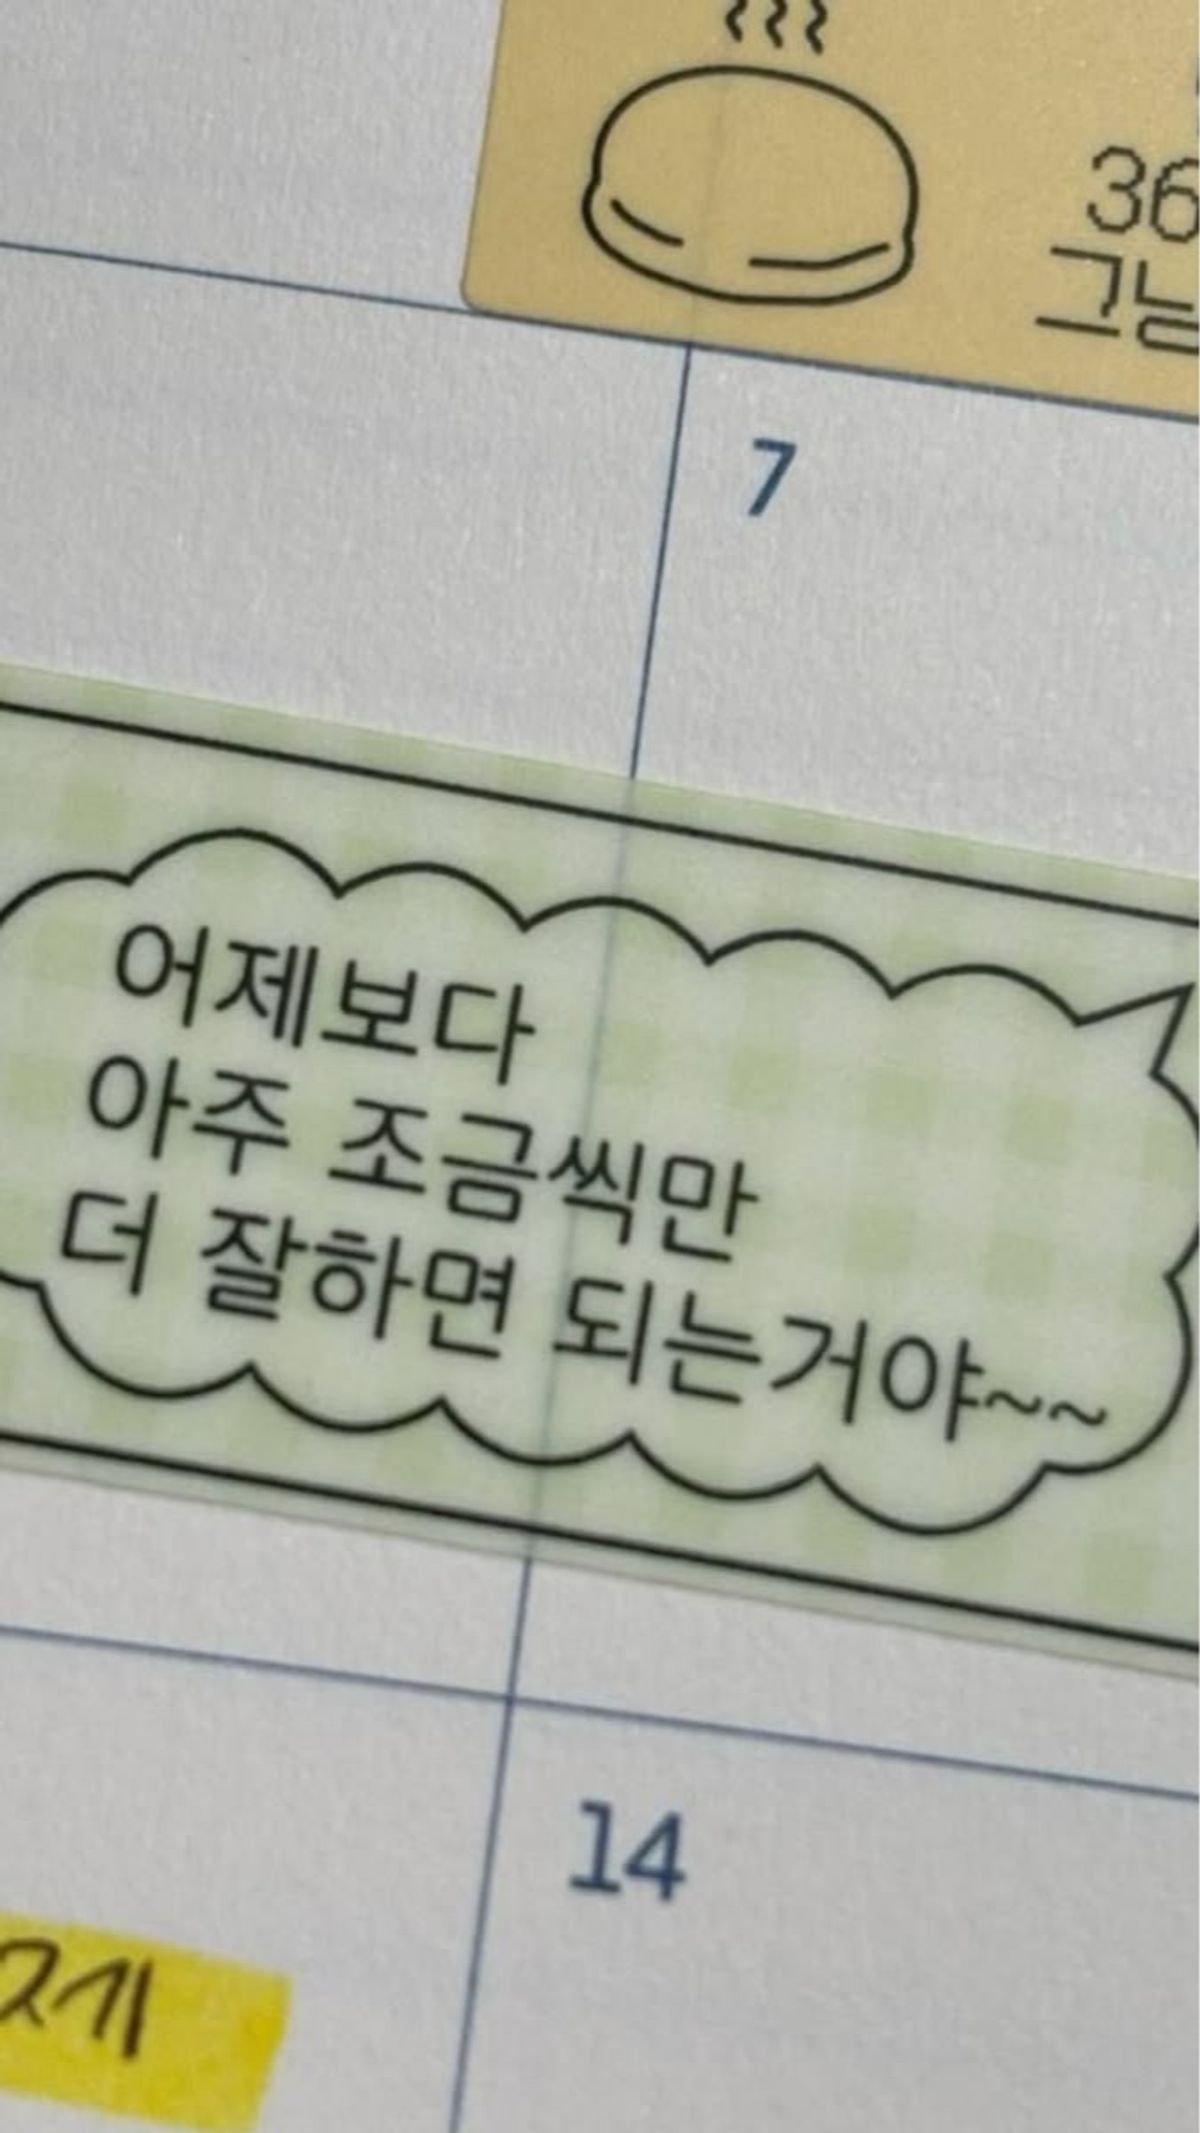 36
7
어제보다
아주 조금씩만
더 잘하면 되는거야~~
14
2개